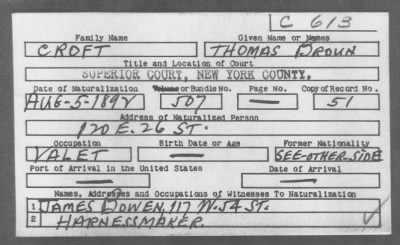 C 613
Family Name Given Name or Names
CROFT THOMAS BROUN
Title and Location of Court
SUPERIOR COURT, NEW YORK COUNTY.
Date of Naturalization Volume or Bundle No. Page No. Copy of Record No.
AUG-5-1892 507 — 51
Address of Naturalized Person
120 E. 26 ST.
Occupation Birth Date or Age Former Nationality
VALET — SEE-OTHER-SIDE
Port of Arrival in the United States Date of Arrival
— —
Names, Addresses and Occupations of Witnesses To Naturalization
1 JAMES BOWEN, 117 W. 54 ST.
2 HARNESSMAKER.